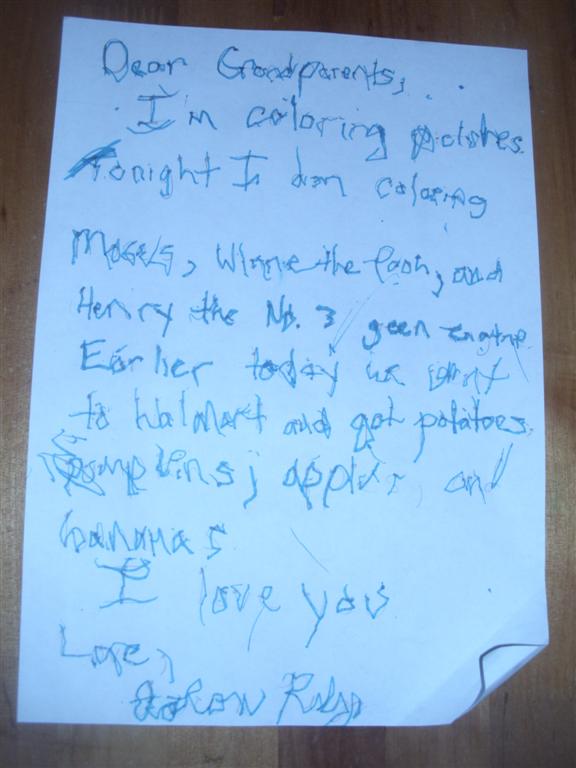 Dear Grandparents,
I'm coloring pictures.
Tonight I am coloring
Winnie the Pooh, and
Henry the No. 3 geen Engine.
Earlier today we went
to Walmart and got potatoes,
pumpkins, apples, and
bananas
I love you
Love,